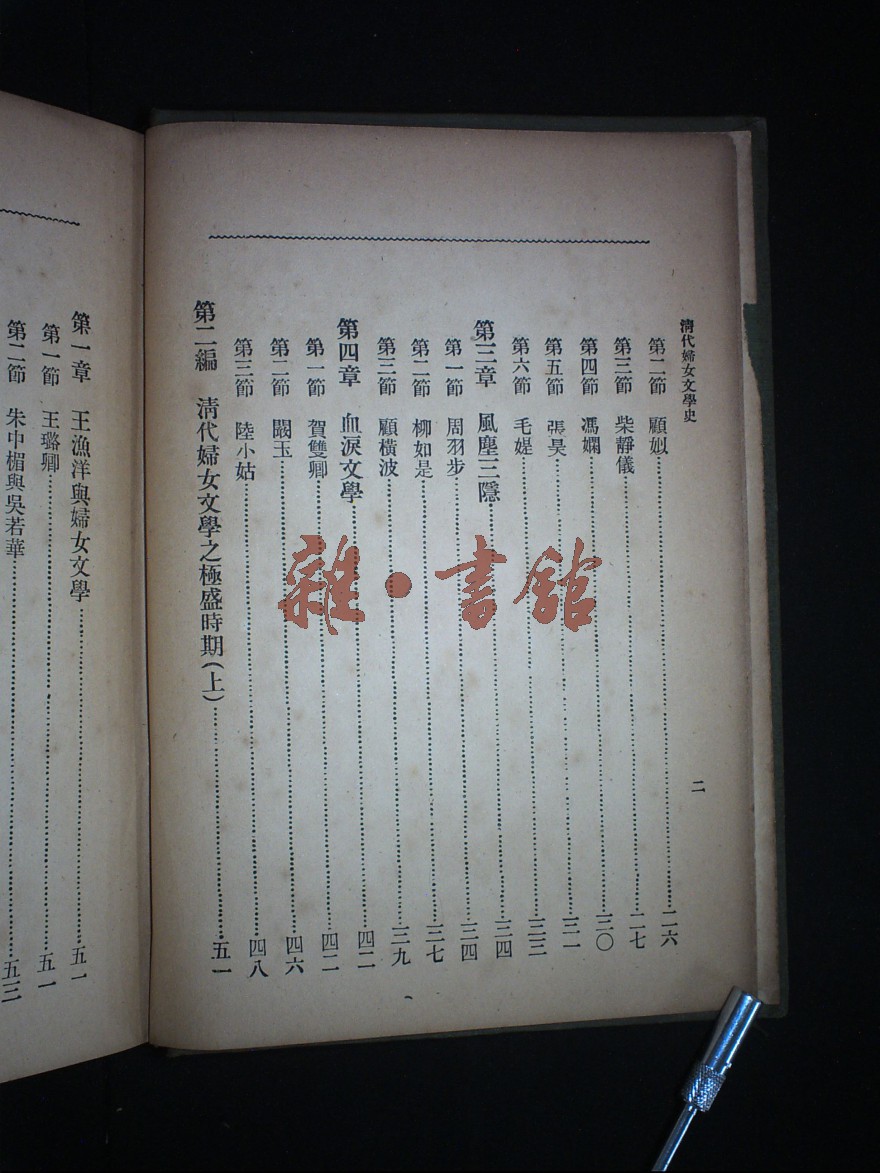 清代婦女文學史
二
第二節 顧姒……二六
第三節 柴靜儀……二七
第四節 馮嫻……三〇
第五節 張昊……三一
第六節 毛媞……三三
第三章 風塵三隱……三四
第一節 周羽步……三四
第二節 柳如是……三七
第三節 顧橫波……三九
第四章 血淚文學……四二
第一節 賀雙卿……四二
第二節 闞玉……四六
第三節 陸小姑……四八
第二編 清代婦女文學之極盛時期(上)……五一
第一章 王漁洋與婦女文學……五一
第一節 王璐卿……五一
第二節 朱中楣與吳若華……五三
雜·書館